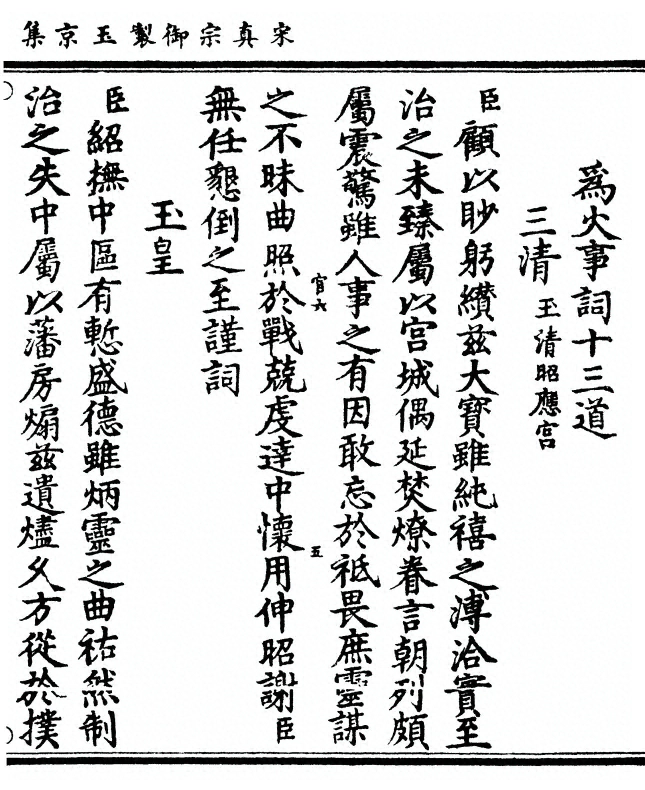 宋真宗御製玉京集
為火事詞十三道
三清 玉清昭應宮
臣顧以眇躬纘茲大寶雖純禧之溥洽實至
治之未臻屬以宮城偶延焚燎眷言朝列頗
屬震驚雖人事之有因敢忘於祗畏庶靈謀
官六
五
之不昧曲照於戰兢虔達中懷用伸昭謝臣
無任懇倒之至謹詞
玉皇
臣紹撫中區有慙盛德雖炳靈之曲祐然制
治之失中屬以藩房煽茲遺燼久方從於撲